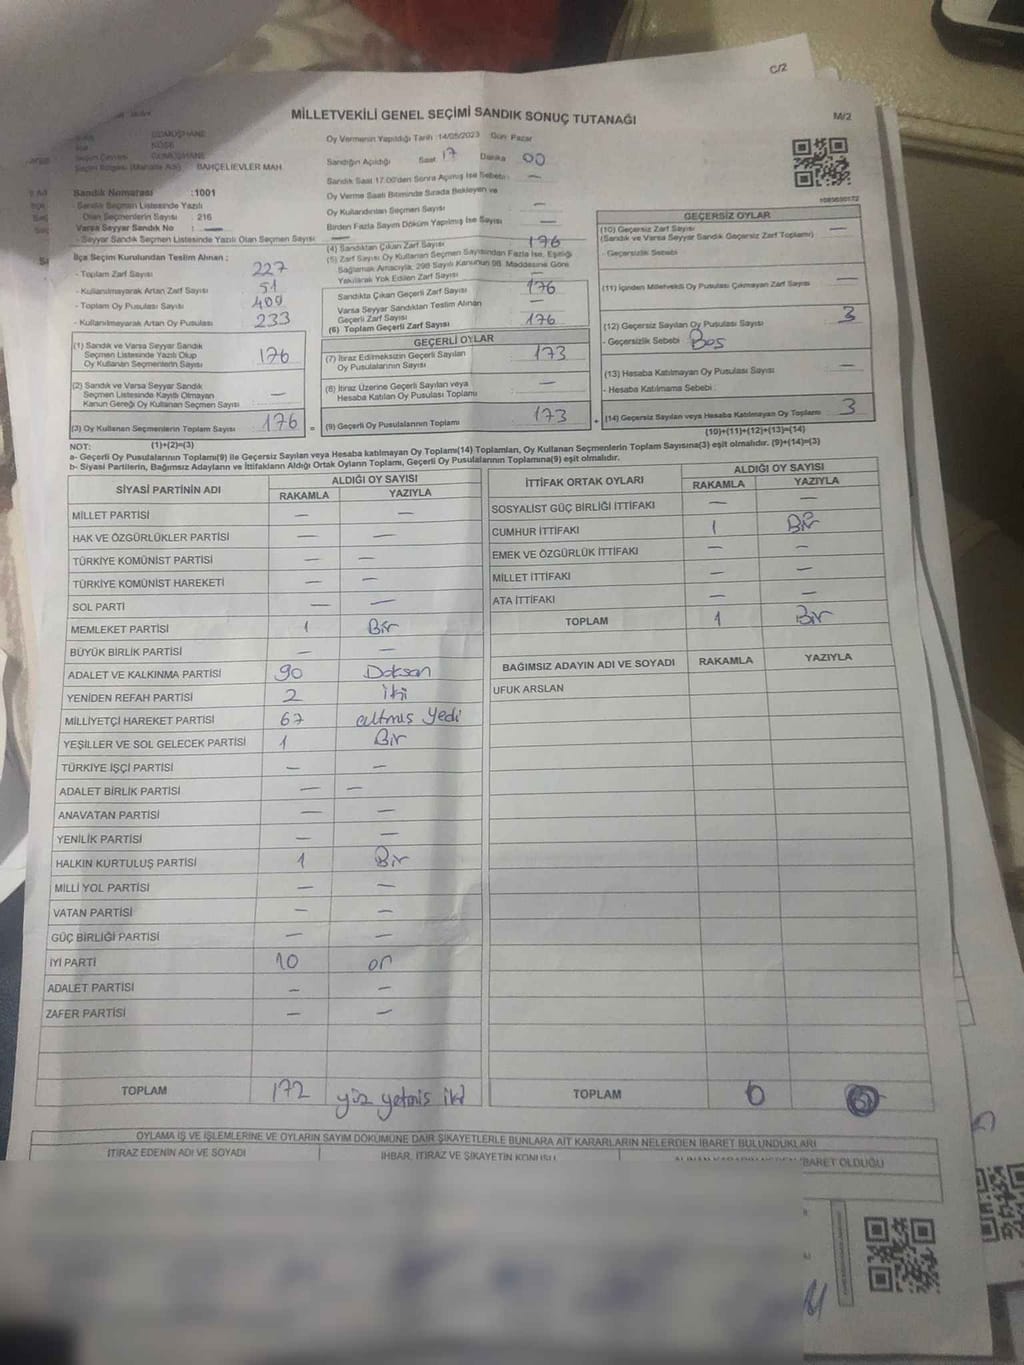 C/2
MİLLETVEKİLİ GENEL SEÇİMİ SANDIK SONUÇ TUTANAĞI
M/2
GÜMÜŞHANE
KÖSE
GÜMÜŞHANE
BAHÇELİEVLER MAH.
Sandık Numarası :1001
- Sandık Seçmen Listesinde Yazılı
Olan Seçmenlerin Sayısı : 216
Varsa Seyyar Sandık No : —
- Seyyar Sandık Seçmen Listesinde Yazılı Olan Seçmen Sayısı —
İlçe Seçim Kurulundan Teslim Alınan ;
- Toplam Zarf Sayısı 227
- Kullanılmayarak Artan Zarf Sayısı 51
- Toplam Oy Pusulası Sayısı 409
- Kullanılmayarak Artan Oy Pusulası 233
(1) Sandık ve Varsa Seyyar Sandık
Seçmen Listesinde Yazılı Olup
Oy Kullanan Seçmenlerin Sayısı 176
(2) Sandık ve Varsa Seyyar Sandık
Seçmen Listesinde Kayıtlı Olmayan
Kanun Gereği Oy Kullanan Seçmen Sayısı —
(3) Oy Kullanan Seçmenlerin Toplam Sayısı 176 =
Oy Vermenin Yapıldığı Tarih :14/05/2023 Gün: Pazar
Sandığın Açıldığı Saat 17 Dakika 00
Sandık Saat 17.00'den Sonra Açılmış İse Sebebi: —
Oy Verme Saati Bitiminde Sırada Bekleyen ve
Oy Kullandırılan Seçmen Sayısı —
Birden Fazla Sayım Döküm Yapılmış İse Sayısı —
(4) Sandıktan Çıkan Zarf Sayısı 176
(5) Zarf Sayısı Oy Kullanan Seçmen Sayısından Fazla İse, Eşitliği
Sağlamak Amacıyla, 298 Sayılı Kanunun 98. Maddesine Göre
Yakılarak Yok Edilen Zarf Sayısı —
Sandıkta Çıkan Geçerli Zarf Sayısı 176
Varsa Seyyar Sandıktan Teslim Alınan
Geçerli Zarf Sayısı —
(6) Toplam Geçerli Zarf Sayısı 176
GEÇERLİ OYLAR
(7) İtiraz Edilmeksizin Geçerli Sayılan
Oy Pusulalarının Sayısı 173
(8) İtiraz Üzerine Geçerli Sayılan veya
Hesaba Katılan Oy Pusulası Toplamı —
(9) Geçerli Oy Pusulalarının Toplamı 173 +
1085650172
GEÇERSİZ OYLAR
(10) Geçersiz Zarf Sayısı
(Sandık ve Varsa Seyyar Sandık Geçersiz Zarf Toplamı) —
- Geçersizlik Sebebi
(11) İçinden Milletvekili Oy Pusulası Çıkmayan Zarf Sayısı —
(12) Geçersiz Sayılan Oy Pusulası Sayısı 3
- Geçersizlik Sebebi Boş
(13) Hesaba Katılmayan Oy Pusulası Sayısı —
- Hesaba Katılmama Sebebi :
(14) Geçersiz Sayılan veya Hesaba Katılmayan Oy Toplamı 3
NOT: (1)+(2)=(3)
(10)+(11)+(12)+(13)=(14)
a- Geçerli Oy Pusulalarının Toplamı(9) ile Geçersiz Sayılan veya Hesaba katılmayan Oy Toplamı(14) Toplamları, Oy Kullanan Seçmenlerin Toplam Sayısına(3) eşit olmalıdır. (9)+(14)=(3)
b- Siyasi Partilerin, Bağımsız Adayların ve İttifakların Aldığı Ortak Oyların Toplamı, Geçerli Oy Pusulalarının Toplamına(9) eşit olmalıdır.
SİYASİ PARTİNİN ADI ALDIĞI OY SAYISI
RAKAMLA YAZIYLA
MİLLET PARTİSİ — —
HAK VE ÖZGÜRLÜKLER PARTİSİ — —
TÜRKİYE KOMÜNİST PARTİSİ — —
TÜRKİYE KOMÜNİST HAREKETİ — —
SOL PARTİ — —
MEMLEKET PARTİSİ 1 Bir
BÜYÜK BİRLİK PARTİSİ — —
ADALET VE KALKINMA PARTİSİ 90 Doksan
YENİDEN REFAH PARTİSİ 2 iki
MİLLİYETÇİ HAREKET PARTİSİ 67 altmış yedi
YEŞİLLER VE SOL GELECEK PARTİSİ 1 Bir
TÜRKİYE İŞÇİ PARTİSİ — —
ADALET BİRLİK PARTİSİ — —
ANAVATAN PARTİSİ — —
YENİLİK PARTİSİ — —
HALKIN KURTULUŞ PARTİSİ 1 Bir
MİLLİ YOL PARTİSİ — —
VATAN PARTİSİ — —
GÜÇ BİRLİĞİ PARTİSİ — —
İYİ PARTİ 10 on
ADALET PARTİSİ — —
ZAFER PARTİSİ — —
TOPLAM 172 yüz yetmiş iki
İTTİFAK ORTAK OYLARI ALDIĞI OY SAYISI
RAKAMLA YAZIYLA
SOSYALİST GÜÇ BİRLİĞİ İTTİFAKI — —
CUMHUR İTTİFAKI 1 Bir
EMEK VE ÖZGÜRLÜK İTTİFAKI — —
MİLLET İTTİFAKI — —
ATA İTTİFAKI — —
TOPLAM 1 Bir
BAĞIMSIZ ADAYIN ADI VE SOYADI RAKAMLA YAZIYLA
UFUK ARSLAN
TOPLAM 0
OYLAMA İŞ VE İŞLEMLERİNE VE OYLARIN SAYIM DÖKÜMÜNE DAİR ŞİKAYETLERLE BUNLARA AİT KARARLARIN NELERDEN İBARET BULUNDUKLARI
İTİRAZ EDENİN ADI VE SOYADI İHBAR, İTİRAZ VE ŞİKAYETİN KONUSU İBARET OLDUĞU